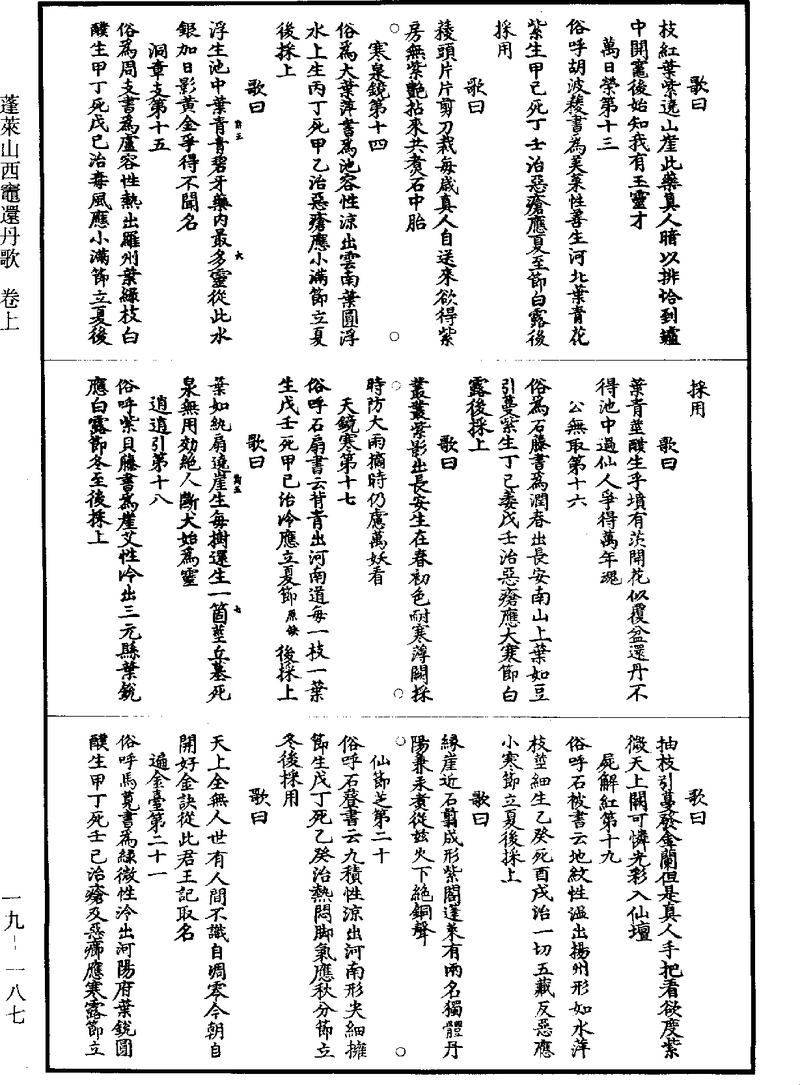 蓬萊山西竈還丹歌　卷上
一九－一八七
歌曰
枝紅葉紫遶山崖此藥真人暗以排恰到爐
中開竈後始知我有玉靈才
萬日榮第十三
俗呼胡波稜書為芙萊性善生河北葉青花
紫生甲己死丁壬治惡瘡應夏至節白露後
採用
歌曰
稜頭片片剪刀裁每歲真人自送來欲得紫
房無紫艷拈來共煮石中胎
寒泉鏡第十四
俗為大葉萍書為池容性涼出雲南葉圓浮
水上生丙丁死甲乙治惡瘡應小滿節立夏
後採上
歌曰
浮生池中葉青青碧牙藥內最多靈從此水
銀加日影黃金爭得不聞名
洞章支第十五
俗為周支書為盧容性熱出羅州葉綠枝白
醭生甲丁死戊己治毒風應小滿節立夏後
採用
歌曰
葉青莖醭生乎墳有茨開花似覆盆還丹不
得池中過仙人爭得萬年魂
公無取第十六
俗為石藤書為潤春出長安南山上葉如豆
引蔓紫生丁己萎戊壬治惡瘡應大寒節白
露後採上
歌曰
叢叢紫影出長安生在春初色耐寒薄闕採
時防大雨摘時仍慮萬妖看
天鏡寒第十七
俗呼石扇書云背青出河南道每一枝一葉
生戊壬死甲己治冷應立夏節原缺後採上
歌曰
葉如紈扇遶崖生每樹還生一箇莖丘墓死
泉無用効絕人斷犬始為靈
逍遙引第十八
俗呼紫貝藤書為崖艾性冷出三元縣葉銳
應白露節冬至後採上
歌曰
抽枝引蔓發金蘭但是真人手把看欲度紫
微天上關可憐光彩入仙壇
屍解紅第十九
俗呼石被書云地紋性溫出揚州形如水萍
枝莖細生乙癸死酉戌治一切五藏反惡應
小寒節立夏後採上
歌曰
緣崖近石翦成形紫閣蓬萊有兩名獨體丹
陽兼汞煮從茲火下絕銅聲
仙節芝第二十
俗呼石䔲書云九積性涼出河南形尖細擁
節生戊丁死乙癸治熱悶脚氣應秋分節立
冬後採用
歌曰
天上全無人世有人間不識自凋零今朝自
開好金訣從此君王記取名
遍金臺第二十一
俗呼馬莧書為綠微性冷出河陽府葉銳圓
醭生甲丁死壬己治瘡及惡癤應寒露節立